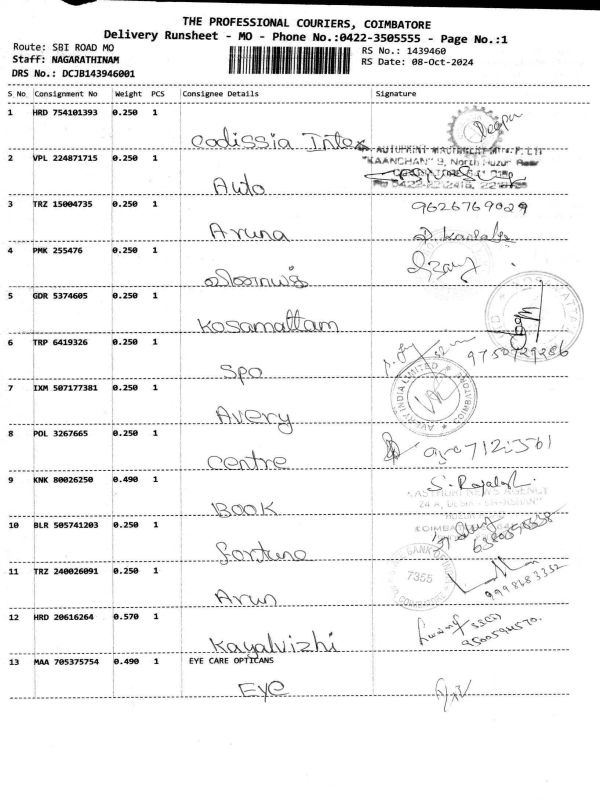 THE PROFESSIONAL COURIERS, COIMBATORE
Delivery Runsheet - MO - Phone No.:0422-3505555 - Page No.:1
Route: SBI ROAD MO
RS No.: 1439460
Staff: NAGARATHINAM
RS Date: 08-Oct-2024
DRS No.: DCJB143946001
S No Consignment No Weight PCS Consignee Details Signature
1 HRD 754101393 0.250 1
Codissia Intex
2 VPL 224871715 0.250 1
"KAANCHAN" 9, North Huzur Road
Auto
3 TRZ 15004735 0.250 1 9626769029
Aruna
4 PMK 255476 0.250 1
5 GDR 5374605 0.250 1
Kosamattam
6 TRP 6419326 0.250 1 9750729286
Spo
7 IXM 507177381 0.250 1 AVERY INDIA LIMITED
Avery
8 POL 3267665 0.250 1
Centre
9 KNK 80026250 0.490 1
KASTHURI NEWS AGENCY
Book
10 BLR 505741203 0.250 1
Fortune
11 TRZ 240026091 0.250 1 7355
Arun
12 HRD 20616264 0.570 1
Kayalvizhi
13 MAA 705375754 0.490 1 EYE CARE OPTICANS
Eye